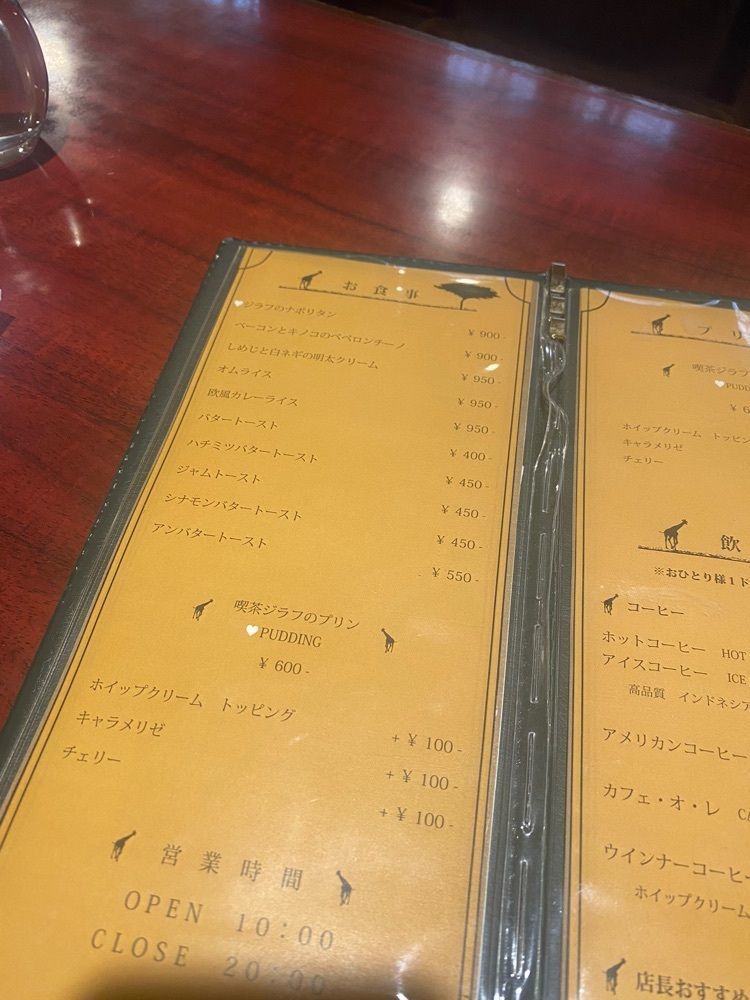 お食事
♥ジラフのナポリタン ¥ 900 -
ベーコンとキノコのペペロンチーノ ¥ 900 -
しめじと白ネギの明太クリーム ¥ 950 -
オムライス ¥ 950 -
欧風カレーライス ¥ 950 -
バタートースト ¥ 400 -
ハチミツバタートースト ¥ 450 -
ジャムトースト ¥ 450 -
シナモンバタートースト ¥ 450 -
アンバタートースト ¥ 550 -
喫茶ジラフのプリン
♥PUDDING
¥ 600 -
ホイップクリーム トッピング + ¥ 100 -
キャラメリゼ + ¥ 100 -
チェリー + ¥ 100 -
営業時間
OPEN 10:00
CLOSE 20:00
プリ
喫茶ジラフ
♥PUDD
¥ 6
ホイップクリーム トッピン
キャラメリゼ
チェリー
飲
※おひとり様1ド
コーヒー
ホットコーヒー HOT
アイスコーヒー ICE
高品質 インドネシア
アメリカンコーヒー
カフェ・オ・レ CA
ウインナーコーヒー
ホイップクリーム
店長おすすめ